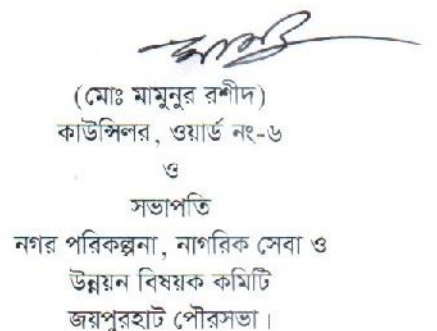 (মোঃ মামুনুর রশীদ)
কাউন্সিলর, ওয়ার্ড নং-৬
ও
সভাপতি
নগর পরিকল্পনা, নাগরিক সেবা ও
উন্নয়ন বিষয়ক কমিটি
জয়পুরহাট পৌরসভা।